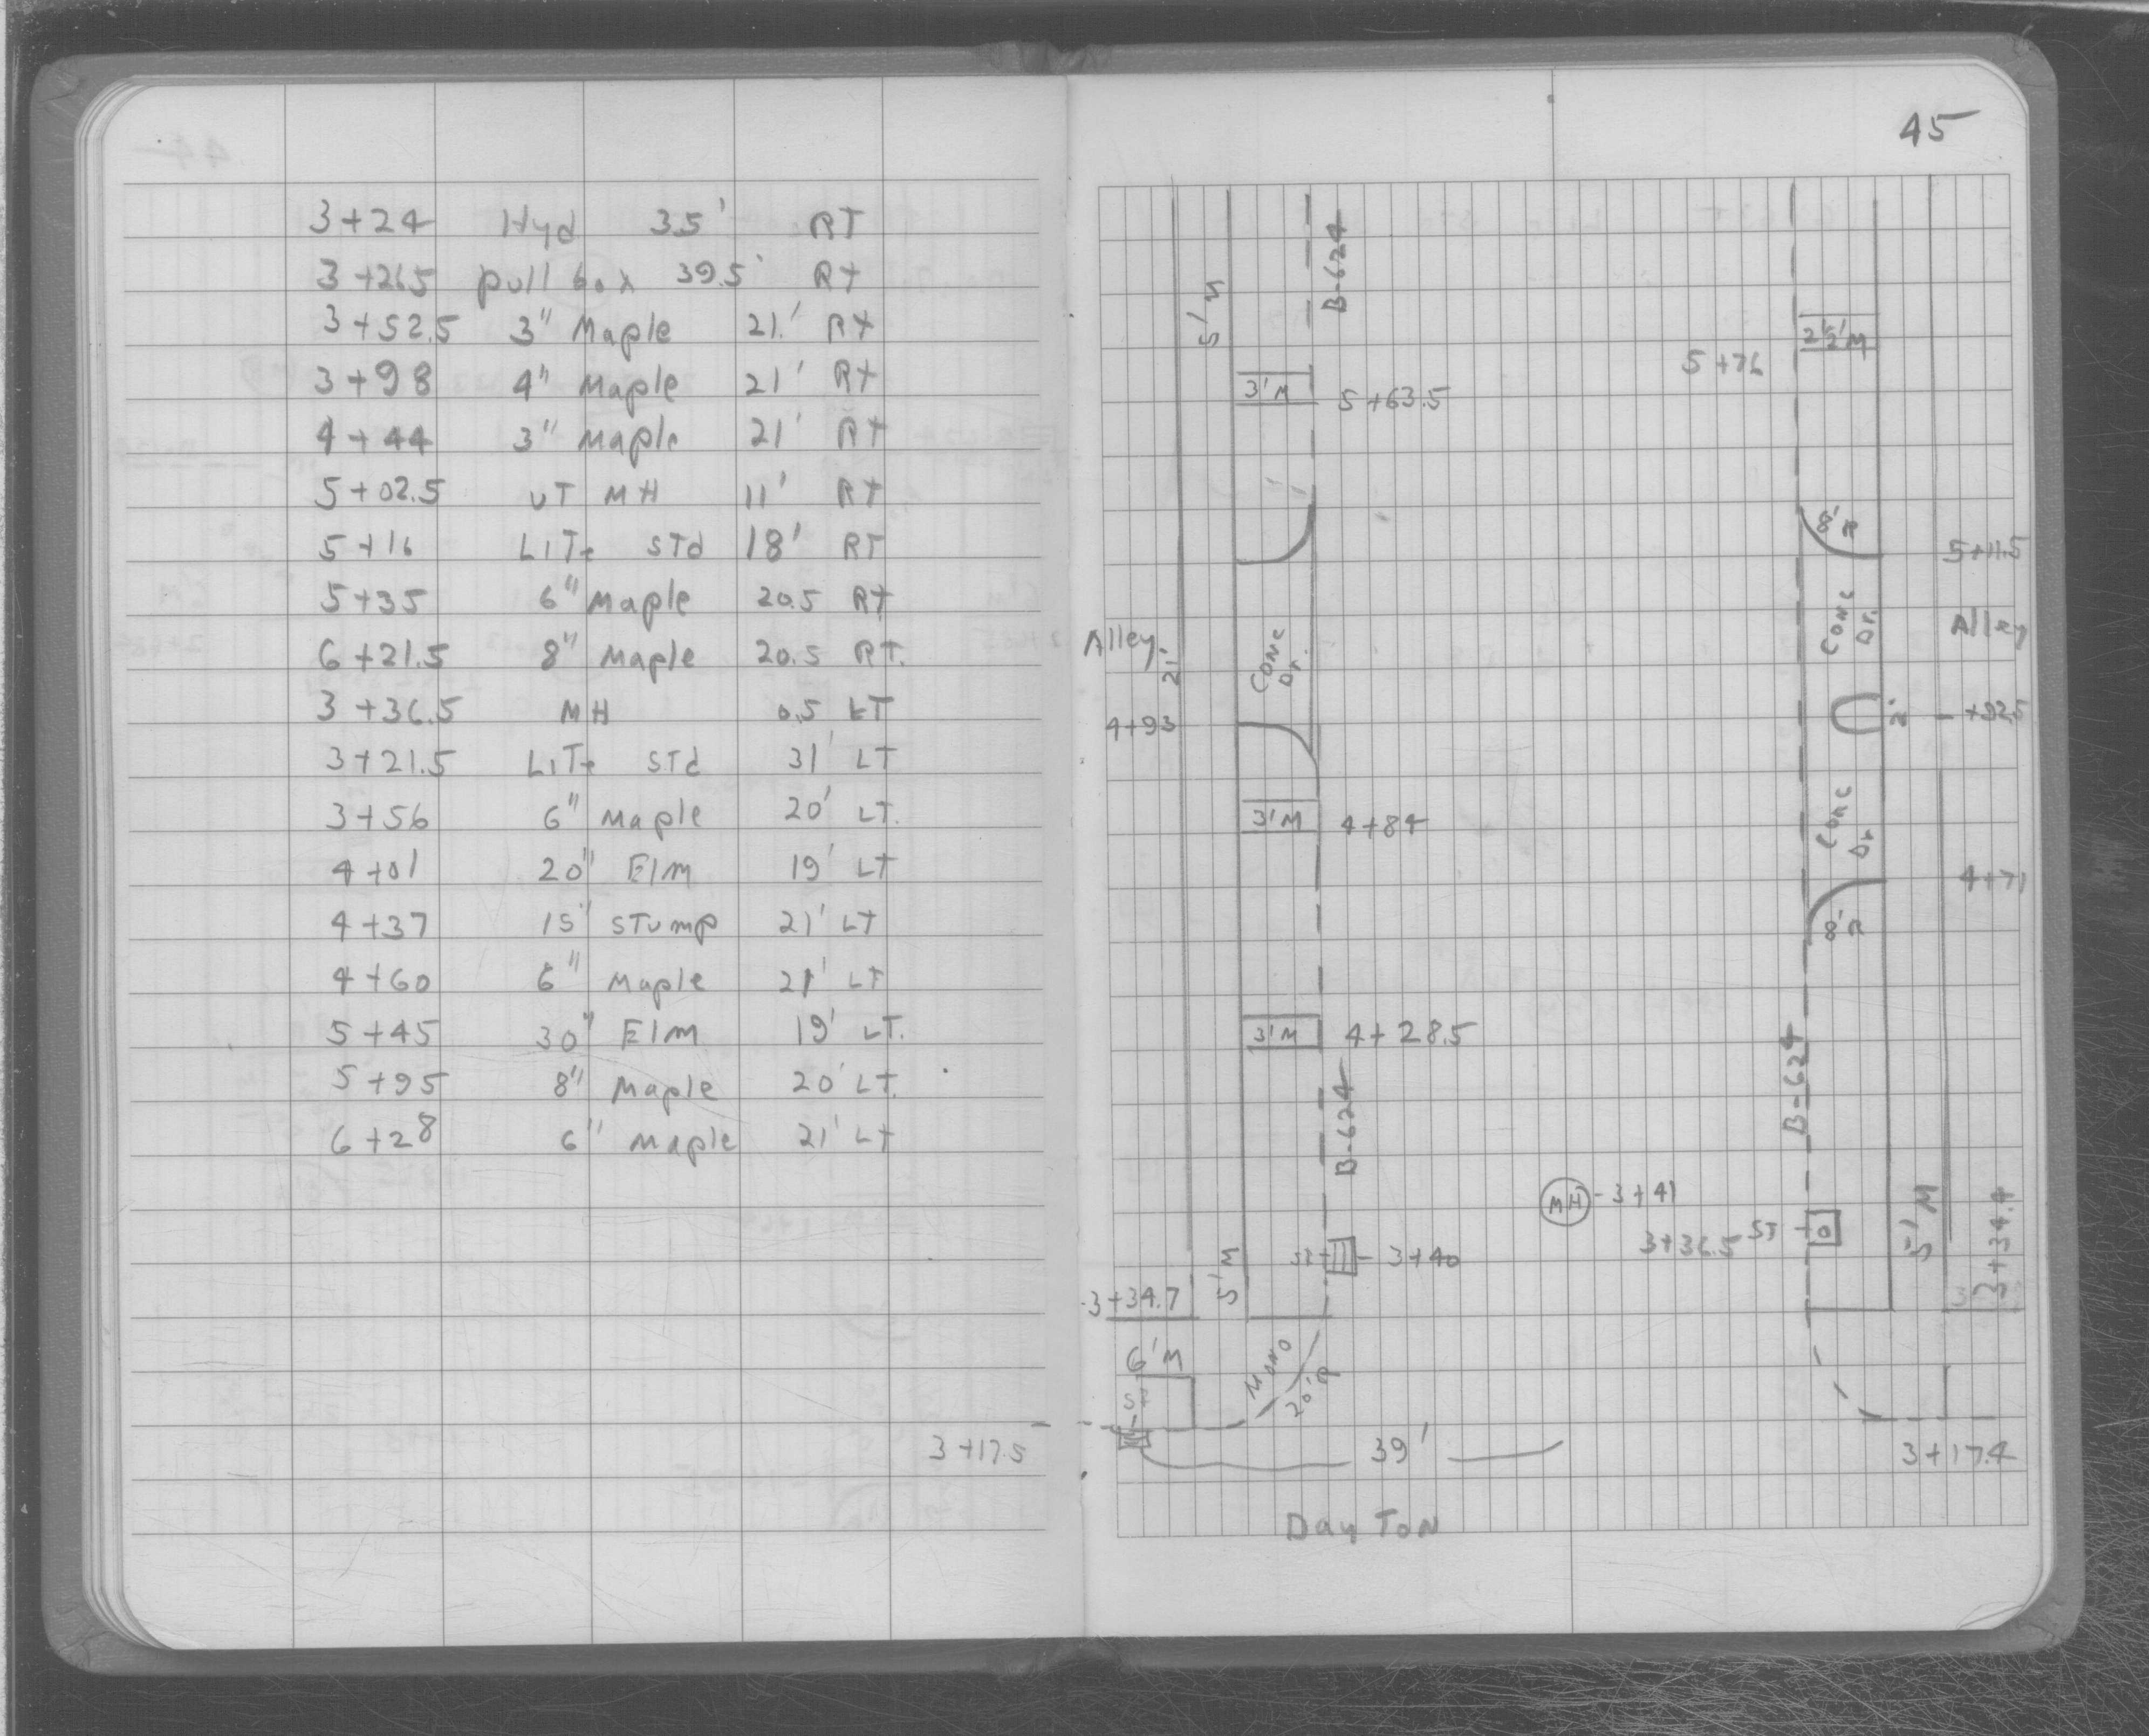 3+24 Hyd 35' RT
3+26.5 pull box 39.5' Rt
3+52.5 3" Maple 21.' Rt
3+98 4" Maple 21' Rt
4+44 3" Maple 21' Rt
5+02.5 UT MH 11' Rt
5+16 LiTe STd 18' RT
5+35 6" Maple 20.5 Rt
6+21.5 8" Maple 20.5 RT.
3+36.5 MH 0.5 LT
3+21.5 LiTe STd 31' LT
3+56 6" Maple 20' LT.
4+01 20" Elm 19' LT
4+37 15" STump 21' LT
4+60 6" Maple 21' LT
5+45 30" Elm 19' LT.
5+95 8" Maple 20' LT.
6+28 6" Maple 21' LT
3+17.5
45
B-624
5'M
2½'M
5+76
3'M 5+63.5
8'R
5+11.5
Conc Dr.
Alley
Alley
21'
Conc Dr.
4+93
2' +92.5
3'M 4+84
Conc Dr
4+71
8'R
3'M 4+28.5
B-624
B-624
MH - 3+41
3+36.5 ST
5'M
3+34.4
5'M
ST - 3+40
3+34.7
6'M
Mono
20'R
ST
39'
3+17.4
DayToN